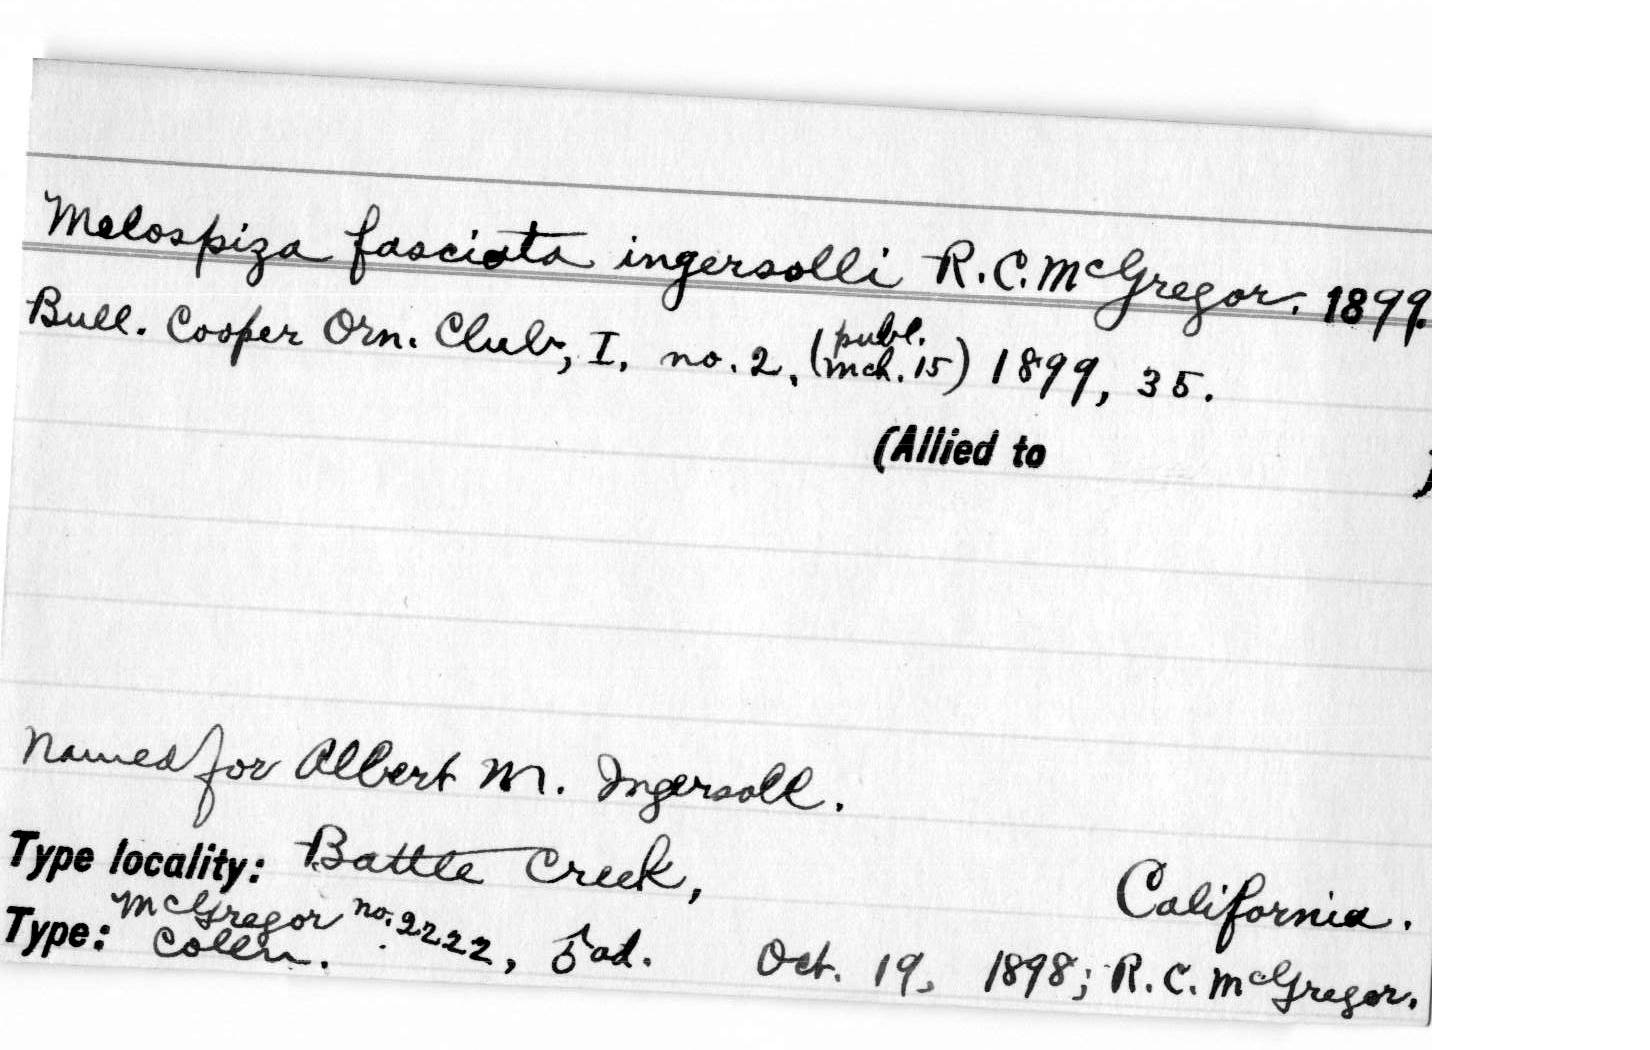 Melospiza fasciata ingersolli R.C. McGregor. 1899.
Bull. Cooper Orn. Club, I, no. 2, (publ. Mch. 15) 1899, 35.
(Allied to )
Named for Albert M. Ingersoll.
Type locality: Battle Creek, California.
Type: McGregor Colln. no. 2222, ♂ ad. Oct. 19, 1898; R. C. McGregor.